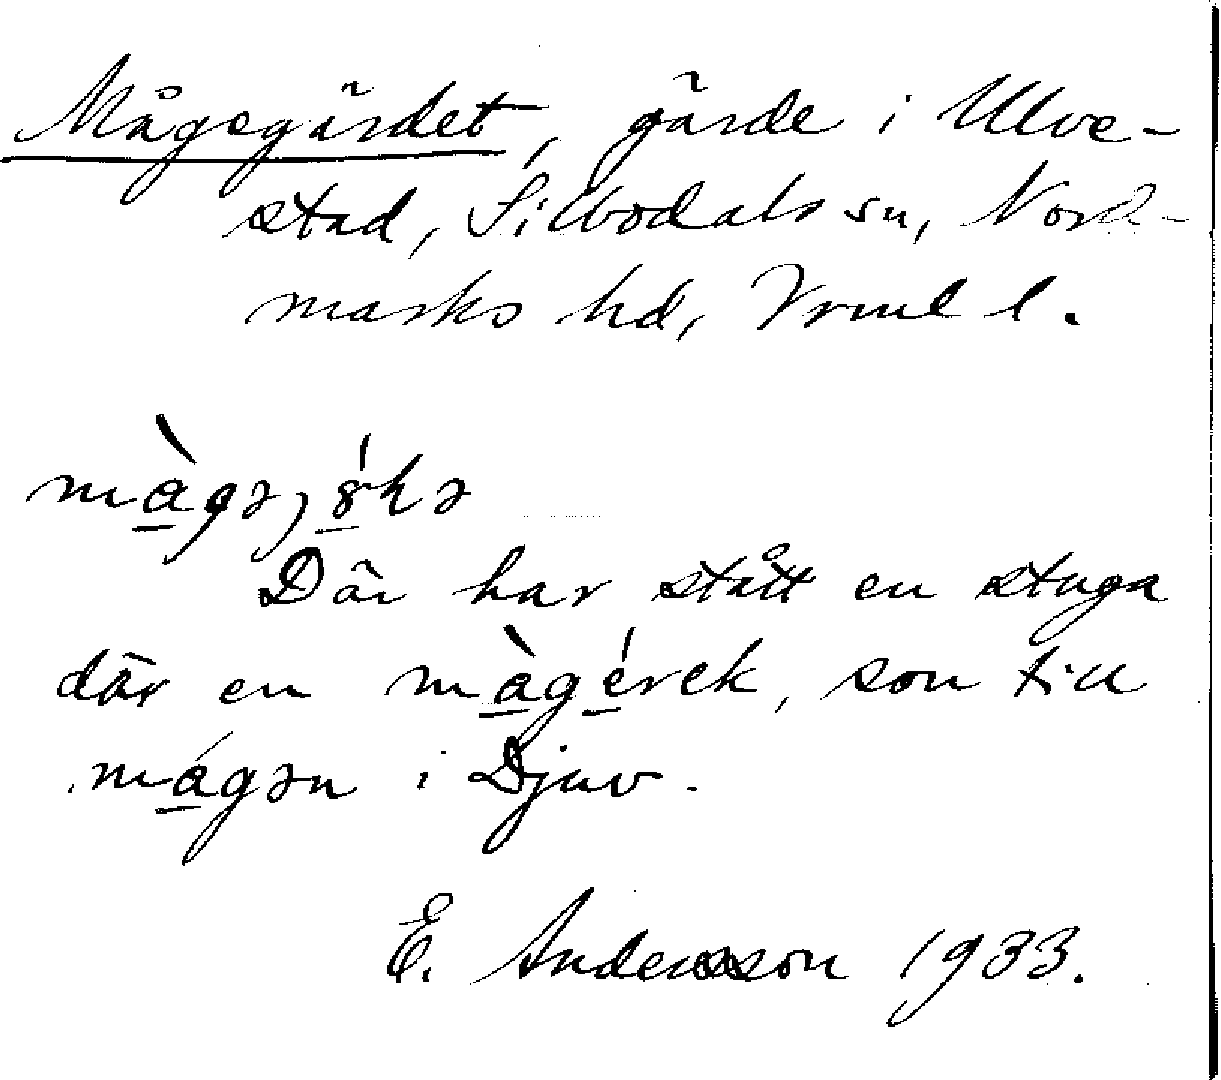 Mågegärdet, gärde i Ulve-
stad, Silbodals sn, Nord-
marks hd, Vrml l.
Där har stått en stuga
där en màgérek, son till
mágən i Djuv.
E. Andersson 1933.